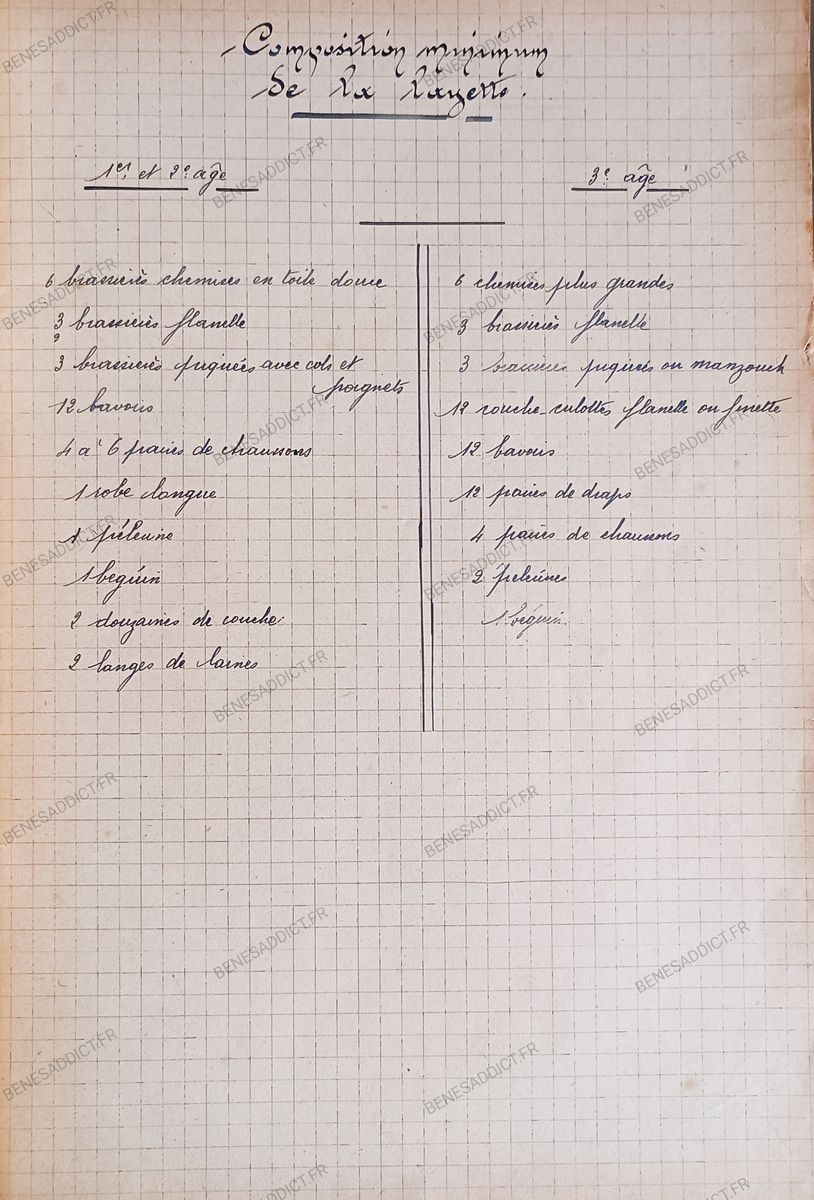 Composition minimum
de la layette.
1er et 2e age
6 brassières chemises en toile douce
3 brassières flanelle
3 brassières piquées avec cols et
poignets
12 bavoirs
4 à 6 paires de chaussons
1 robe longue
1 pélerine
1 béguin
2 douzaines de couche
2 langes de laines
3e age
6 chemises plus grandes
3 brassières flanelle
3 brassières piquées ou
12 couche-culottes flanelle ou finette
12 bavoirs
12 paires de draps
4 paires de chaussons
2 pélerines
1 béguin.
BENESADDICT.FR